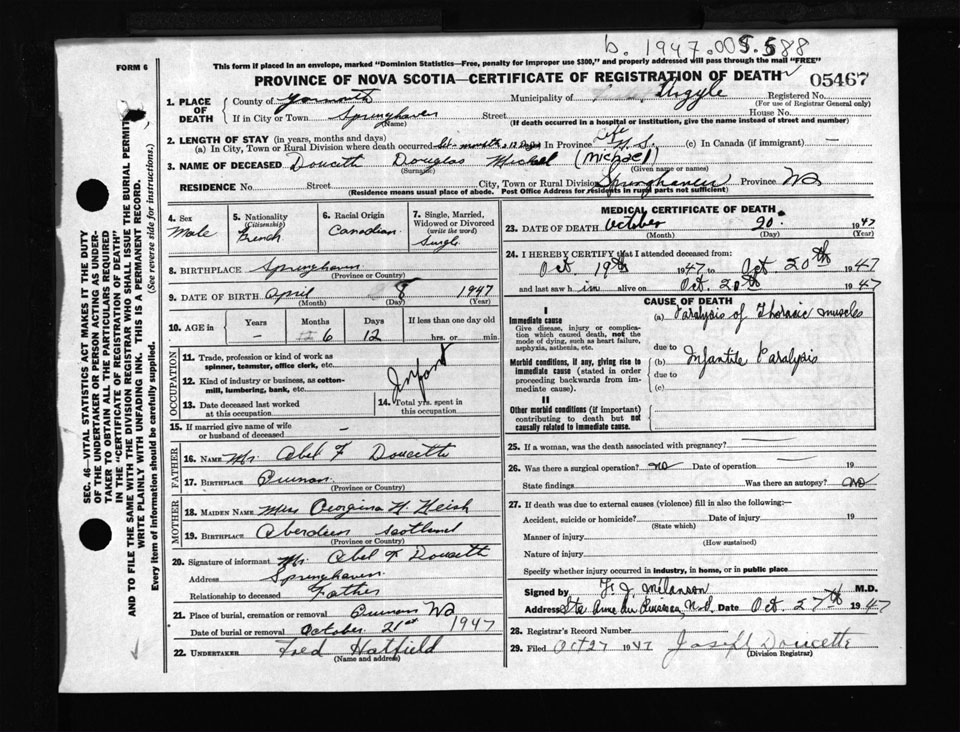 b. 1947.005.588
FORM 6
This form if placed in an envelope, marked "Dominion Statistics—Free, penalty for improper use $300," and properly addressed will pass through the mail "FREE"
PROVINCE OF NOVA SCOTIA—CERTIFICATE OF REGISTRATION OF DEATH
05467
1. PLACE OF DEATH
County of Yarmouth Municipality of Argyle Registered No.
(For use of Registrar General only)
If in City or Town Springhaven Street House No.
(Name) (If death occurred in a hospital or institution, give the name instead of street and number)
2. LENGTH OF STAY (in years, months and days)
(a) In City, Town or Rural Division where death occurred six months 12 days In Province Life N.S. (c) In Canada (if immigrant) —
3. NAME OF DECEASED Doucette Douglas Michel (Michael)
(Surname) (Given name or names)
RESIDENCE No. Street City, Town or Rural Division Springhaven Province NS
(Residence means usual place of abode. Post Office Address for residents in rural parts not sufficient)
4. Sex Male
5. Nationality (Citizenship) French
6. Racial Origin Canadian
7. Single, Married, Widowed or Divorced (write the word) Single
8. BIRTHPLACE Springhaven
(Province or Country)
9. DATE OF BIRTH April 8 1947
(Month) (Day) (Year)
10. AGE in Years Months Days If less than one day old
– 6 12 hrs. or min.
OCCUPATION
11. Trade, profession or kind of work as spinner, teamster, office clerk, etc.
12. Kind of industry or business, as cotton-mill, lumbering, bank, etc.
Infant
13. Date deceased last worked at this occupation
14. Total yrs. spent in this occupation
15. If married give name of wife or husband of deceased —
FATHER
16. NAME Mr. Abel F Doucette
17. BIRTHPLACE
(Province or Country)
MOTHER
18. MAIDEN NAME Miss Georgina
19. BIRTHPLACE Aberdeen Scotland
(Province or Country)
20. Signature of informant Mr. Abel F Doucette
Address Springhaven
Relationship to deceased Father
21. Place of burial, cremation or removal NS
Date of burial or removal October 21st 1947
22. UNDERTAKER Fred Hatfield
(Name and address)
MEDICAL CERTIFICATE OF DEATH
23. DATE OF DEATH October 20. 1947
(Month) (Day) (Year)
24. I HEREBY CERTIFY that I attended deceased from:
Oct. 19th 1947 to Oct 20th 1947
and last saw him alive on Oct. 20th 1947
CAUSE OF DEATH
I
Immediate cause
Give disease, injury or complication which caused death, not the mode of dying, such as heart failure, asphyxia, asthenia, etc.
(a) Paralysis of Thoracic muscles
due to
Morbid conditions, if any, giving rise to immediate cause (stated in order proceeding backwards from immediate cause).
(b) Infantile Paralysis
due to
(c)
II
Other morbid conditions (if important) contributing to death but not causally related to immediate cause.
25. If a woman, was the death associated with pregnancy? —
26. Was there a surgical operation? no Date of operation — 19
State findings Was there an autopsy? no
27. If death was due to external causes (violence) fill in also the following:—
Accident, suicide or homicide? Date of injury 19
(State which)
Manner of injury
(How sustained)
Nature of injury
Specify whether injury occurred in industry, in home, or in public place
Signed by F. J. Melanson M.D.
Address Ste Anne du Ruisseau, N.S. Date Oct. 27th 1947
28. Registrar's Record Number
29. Filed Oct 27 1947 Joseph Doucette
(Division Registrar)
SEC. 46—VITAL STATISTICS ACT MAKES IT THE DUTY OF THE UNDERTAKER OR PERSON ACTING AS UNDERTAKER TO OBTAIN ALL THE PARTICULARS REQUIRED IN THE "CERTIFICATE OF REGISTRATION OF DEATH" AND TO FILE THE SAME WITH THE DIVISION REGISTRAR WHO SHALL ISSUE THE BURIAL PERMIT.
WRITE PLAINLY WITH UNFADING INK. THIS IS A PERMANENT RECORD.
Every item of information should be carefully supplied. (See reverse side for instructions.)